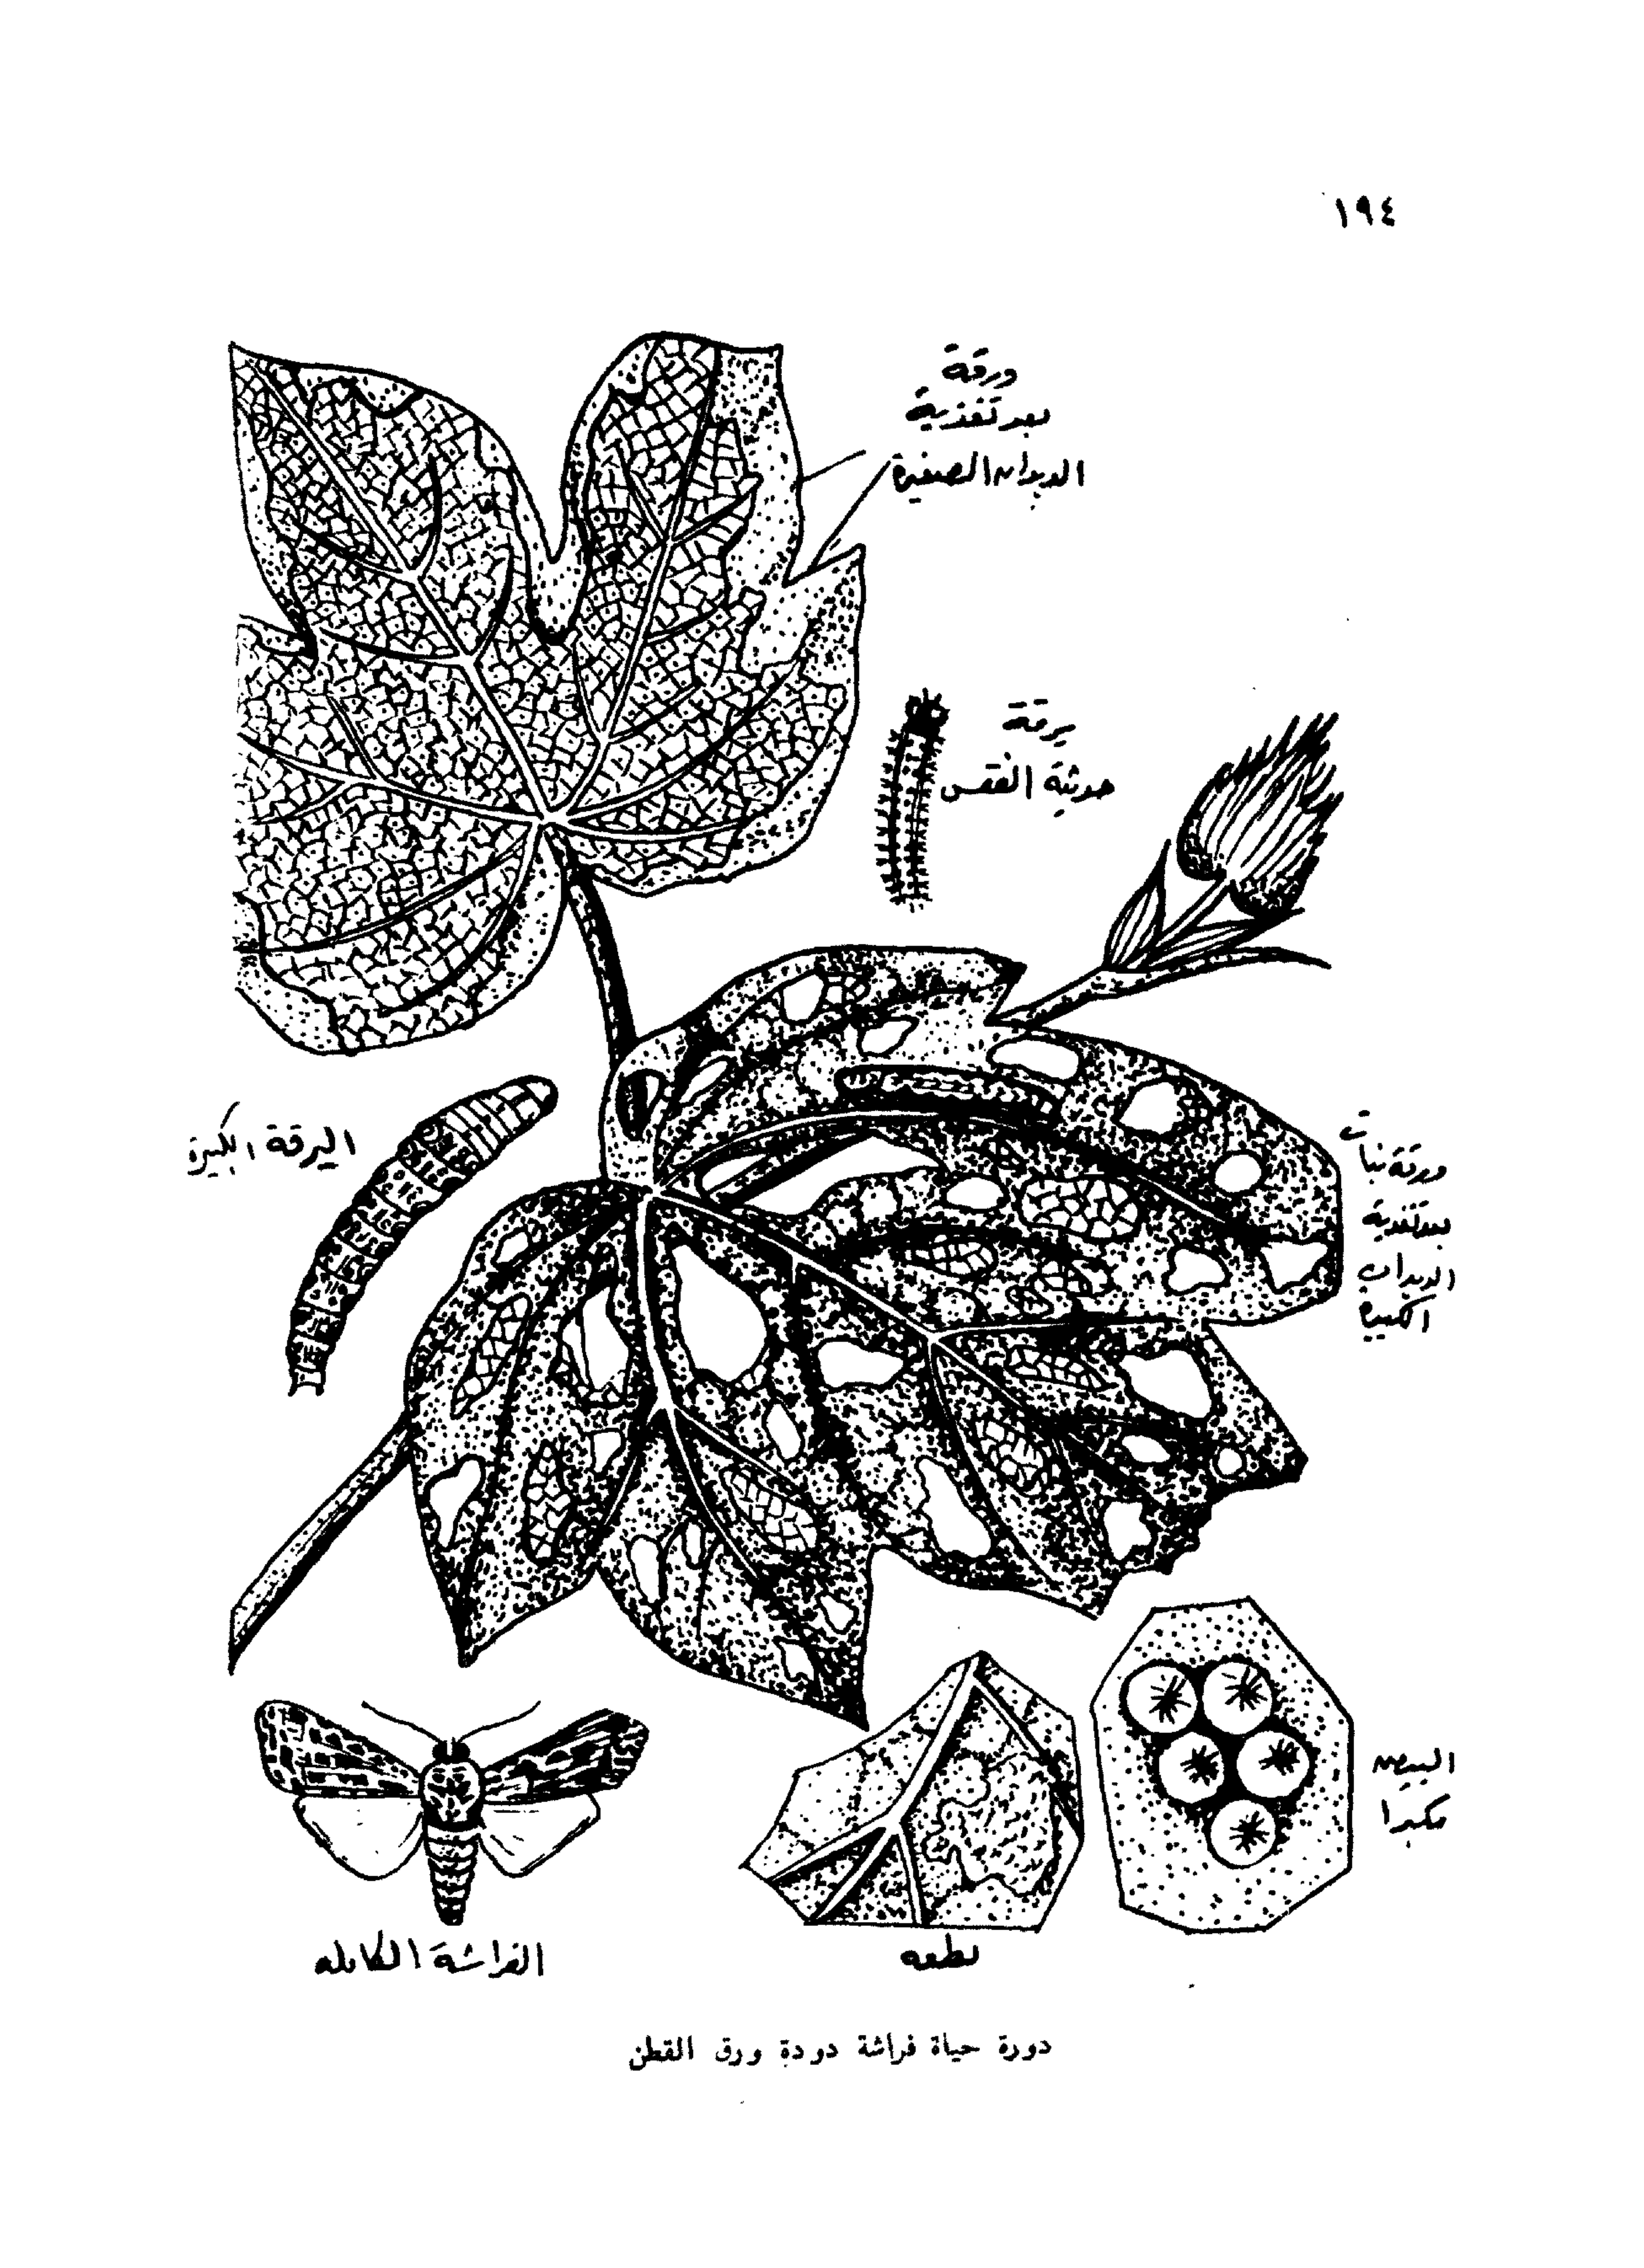 ١٩٤
ورقة
بعد تغذية
الديدان الصغيرة
يرقة
حديثة الفقس
اليرقة الكبيرة
ورقة نبات
بعد تغذية
الديدان
الكبيرة
البيض
مكبرا
لطعه
الفراشة الكامله
دورة حياة فراشة دودة ورق القطن